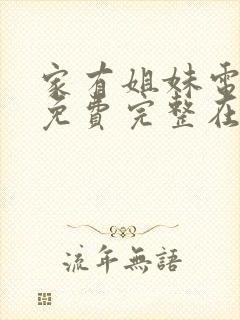 家有姐妹電
免費完整在
流年無語